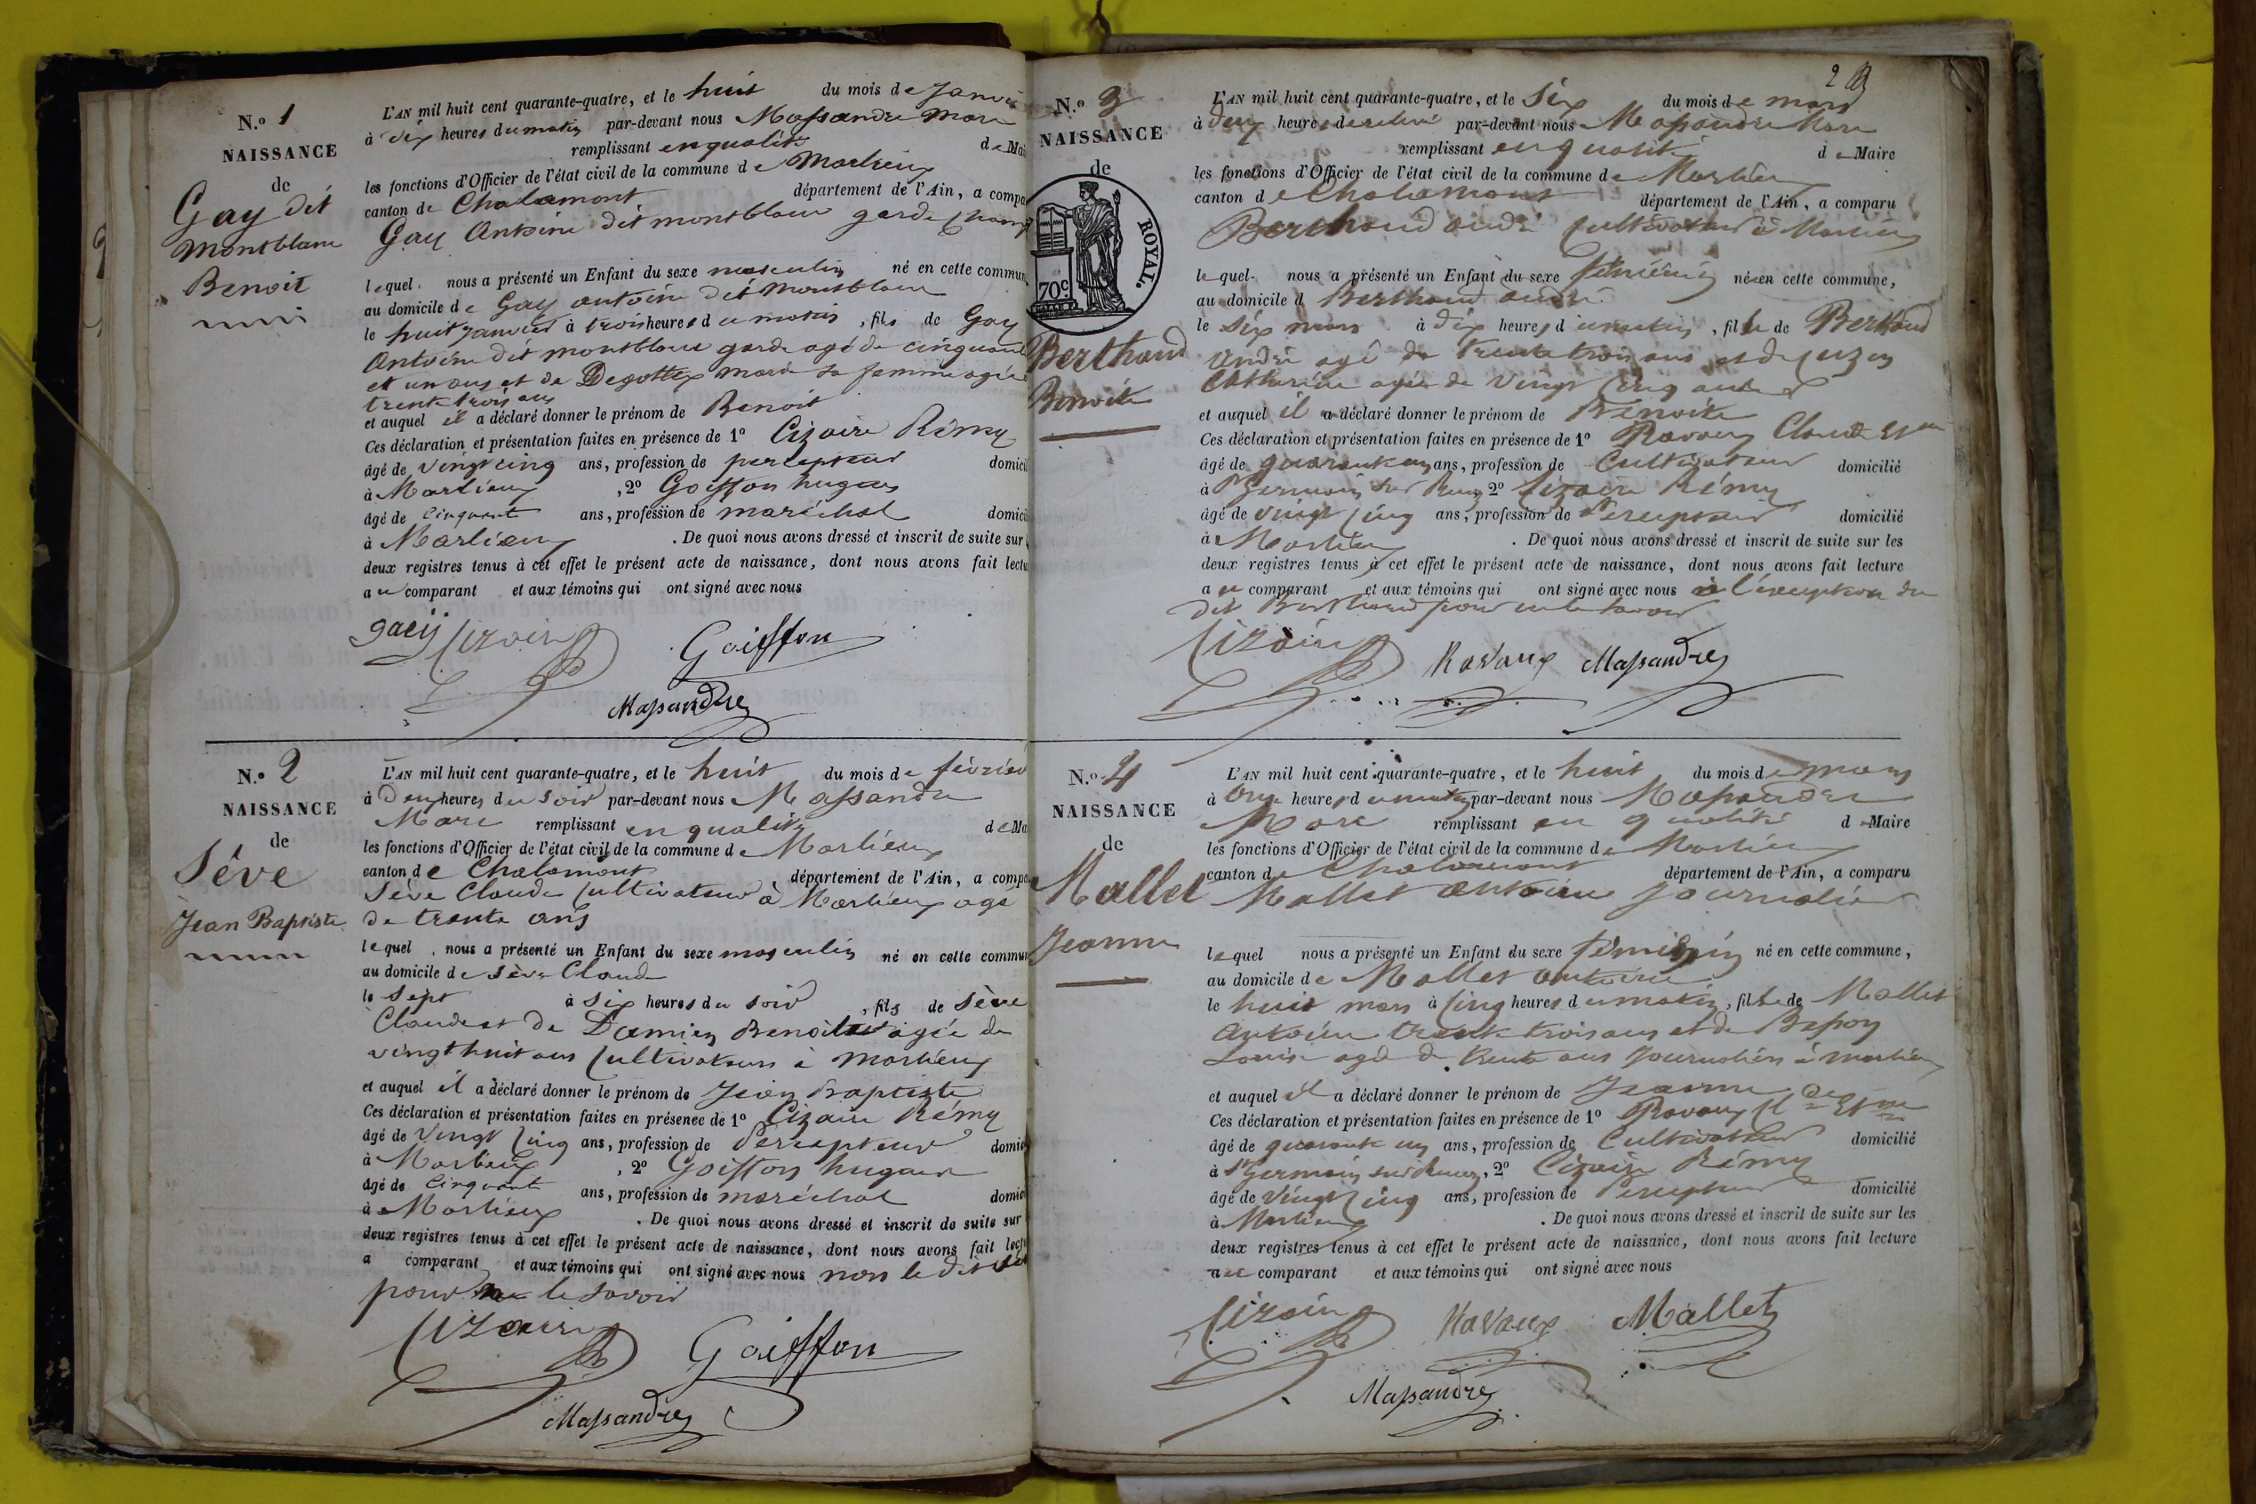 N.o 1
NAISSANCE
de
Gay dit
Montblanc
Benoit
L'AN mil huit cent quarante-quatre, et le huit du mois de Janvier
à dix heures du matin par-devant nous Massandre Marc
remplissant en qualité de Mai
les fonctions d'Officier de l'état civil de la commune de Marlieux
canton de Chalamont département de l'Ain, a compa
Gay Antoine dit montblanc garde champ
lequel nous a présenté un Enfant du sexe masculin né en cette commun
au domicile de Gay antoine dit Montblanc
le huit janvier à trois heures du matin, fils de Gay
Antoine dit montblanc garde agé de cinquante
et un ans et de marie sa femme agée
trente trois ans
et auquel il a déclaré donner le prénom de Benoit
Ces déclaration et présentation faites en présence de 1o Cizaire Rémy
âgé de vingt cinq ans, profession de percepteur domicil
à Marlieux, 2o Goiffon hugues
âgé de cinquante ans, profession de maréchal domici
à Marlieux. De quoi nous avons dressé et inscrit de suite sur
deux registres tenus à cet effet le présent acte de naissance, dont nous avons fait lectu
au comparant et aux témoins qui ont signé avec nous
gaÿ Cizaire Goiffon
Massandre
N.o 2
NAISSANCE
de
Sève
Jean Baptiste
L'AN mil huit cent quarante-quatre, et le huit du mois de février
à deux heures du soir par-devant nous Massandre
Marc remplissant en qualité de Ma
les fonctions d'Officier de l'état civil de la commune de Marlieux
canton de Chalamont département de l'Ain, a compa
Sève Claude Cultivateur à Marlieux agé
de trente ans
lequel nous a présenté un Enfant du sexe masculin né en cette commun
au domicile de Sève Claude
le sept à six heures du soir, fils de Sève
Claude et de Damien Benoite agée de
vingt huit ans Cultivateurs à Marlieux
et auquel il a déclaré donner le prénom de Jean Baptiste
Ces déclaration et présentation faites en présence de 1o Cizaire Rémy
âgé de Vingt Cinq ans, profession de Percepteur domici
à Marlieux, 2o Goiffon hugues
âgé de Cinquante ans, profession de maréchal domici
à Marlieux. De quoi nous avons dressé et inscrit de suite sur
deux registres tenus à cet effet le présent acte de naissance, dont nous avons fait lectu
a comparant et aux témoins qui ont signé avec nous non le dit
pour ne le savoir
Cizaire Goiffon
Massandre
2
N.o 3
NAISSANCE
de
ROYAL.
70c
Berthaud
Benoite
L'AN mil huit cent quarante-quatre, et le Six du mois de mars
à deux heures de relevé par-devant nous Massandre Marc
remplissant en qualité de Maire
les fonctions d'Officier de l'état civil de la commune de Marlieux
canton de Chalamont département de l'Ain, a comparu
Berthaud andré Cultivateur à Marlieux
lequel nous a présenté un Enfant du sexe féminin né en cette commune,
au domicile d Berthaud andré
le six mars à dix heures du matin, fille de Berthaud
andré agé de trente trois ans et de
Catherine agée de vingt cinq ans
et auquel il a déclaré donner le prénom de Benoite
Ces déclaration et présentation faites en présence de 1o Ravaux Claude
âgé de quarante un ans, profession de Cultivateur domicilié
à St Germain sur Renon 2o Cizaire Rémy
âgé de vingt Cinq ans, profession de Percepteur domicilié
à Marlieux. De quoi nous avons dressé et inscrit de suite sur les
deux registres tenus à cet effet le présent acte de naissance, dont nous avons fait lecture
au comparant et aux témoins qui ont signé avec nous à l'exception du
dit Berthaud pour ne le savoir
Cizaire Ravaux Massandre
N.o 4
NAISSANCE
de
Mallet
Jeanne
L'AN mil huit cent quarante-quatre, et le huit du mois de mars
à onze heures du matin par-devant nous Massandre
Marc remplissant en qualité de Maire
les fonctions d'Officier de l'état civil de la commune de Marlieux
canton de Chalamont département de l'Ain, a comparu
Mallet antoine journalier
lequel nous a présenté un Enfant du sexe féminin né en cette commune,
au domicile de Mallet antoine
le huit mars à Cinq heures du matin, fille de Mallet
antoine trente trois ans et de
Louise agée de trente ans journaliers à marlieux
et auquel il a déclaré donner le prénom de Jeanne
Ces déclaration et présentation faites en présence de 1o Ravaux
âgé de quarante un ans, profession de Cultivateur domicilié
à St Germain sur Renon, 2o Cizaire Rémy
âgé de vingt Cinq ans, profession de Percepteur domicilié
à Marlieux. De quoi nous avons dressé et inscrit de suite sur les
deux registres tenus à cet effet le présent acte de naissance, dont nous avons fait lecture
au comparant et aux témoins qui ont signé avec nous
Cizaire Ravaux Mallet
Massandre